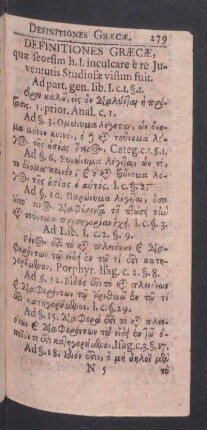 DEFINITIONES GRÆCÆ. 279
DEFINITIONES GRÆCÆ,
quæ seorsim h.l. inculcare è re Ju-
ventutis Studiosæ visum fuit.
Ad part. gen. lib. I. c.I. §.1.
Ὅρον καλῶ, εἰς ὃν διαλύεται ἡ πρό-
τασις. 1. prior. Anal. c. 1.
Ad §. 3. Ὁμώνυμα λέγεται, ὧν ὄνο-
μα μόνον κοινόν, ὁ δὲ κατὰ τοὔνομα λό-
γος τῆς οὐσίας Categ. c.1. §.1.
Ad §. 6. Συνώνυμα λέγεται, ὧν τό,
τε ὄνομα κοινόν, καὶ ὁ κατὰ τοὔνομα λό-
γος τῆς οὐσίας ὁ αὐτός. l. c. §. 2.
Ad §. 10. Παρώνυμα λέγεται, ὅσα
ἀπό τινος διαφέροντα τῇ πτώσει τὴν
κατὰ τοὔνομα προσηγορίαν ἔχει. l. c. §. 3.
Ad Lib. I. c. 2. §. 9.
κατὰ πλειόνων καὶ δια-
φερόντων τῷ εἴδει ἐν τῷ τί ἐστι κατη-
γορούμενον. Porphyr. Isag. c. 2. §. 8.
Ad §. 12. Εἶδός ἐστι τὸ κατὰ πλειόνων
καὶ διαφερόντων τῷ ἀριθμῷ ἐν τῷ τί
ἐστι κατηγορούμενον. l. c. §. 29.
Ad §. 15. Διαφορά ἐστι τὸ κατὰ πλειό-
νων καὶ διαφερόντων τῷ εἴδει ἐν τῷ ὁ-
ποῖόν τι ἐστι κατηγορούμενον. Isag. c.3. §. 17.
Ad §. 18. Ἴδιόν ἐστιν, ὃ μὴ δηλοῖ μὲν
N 5 τὸ